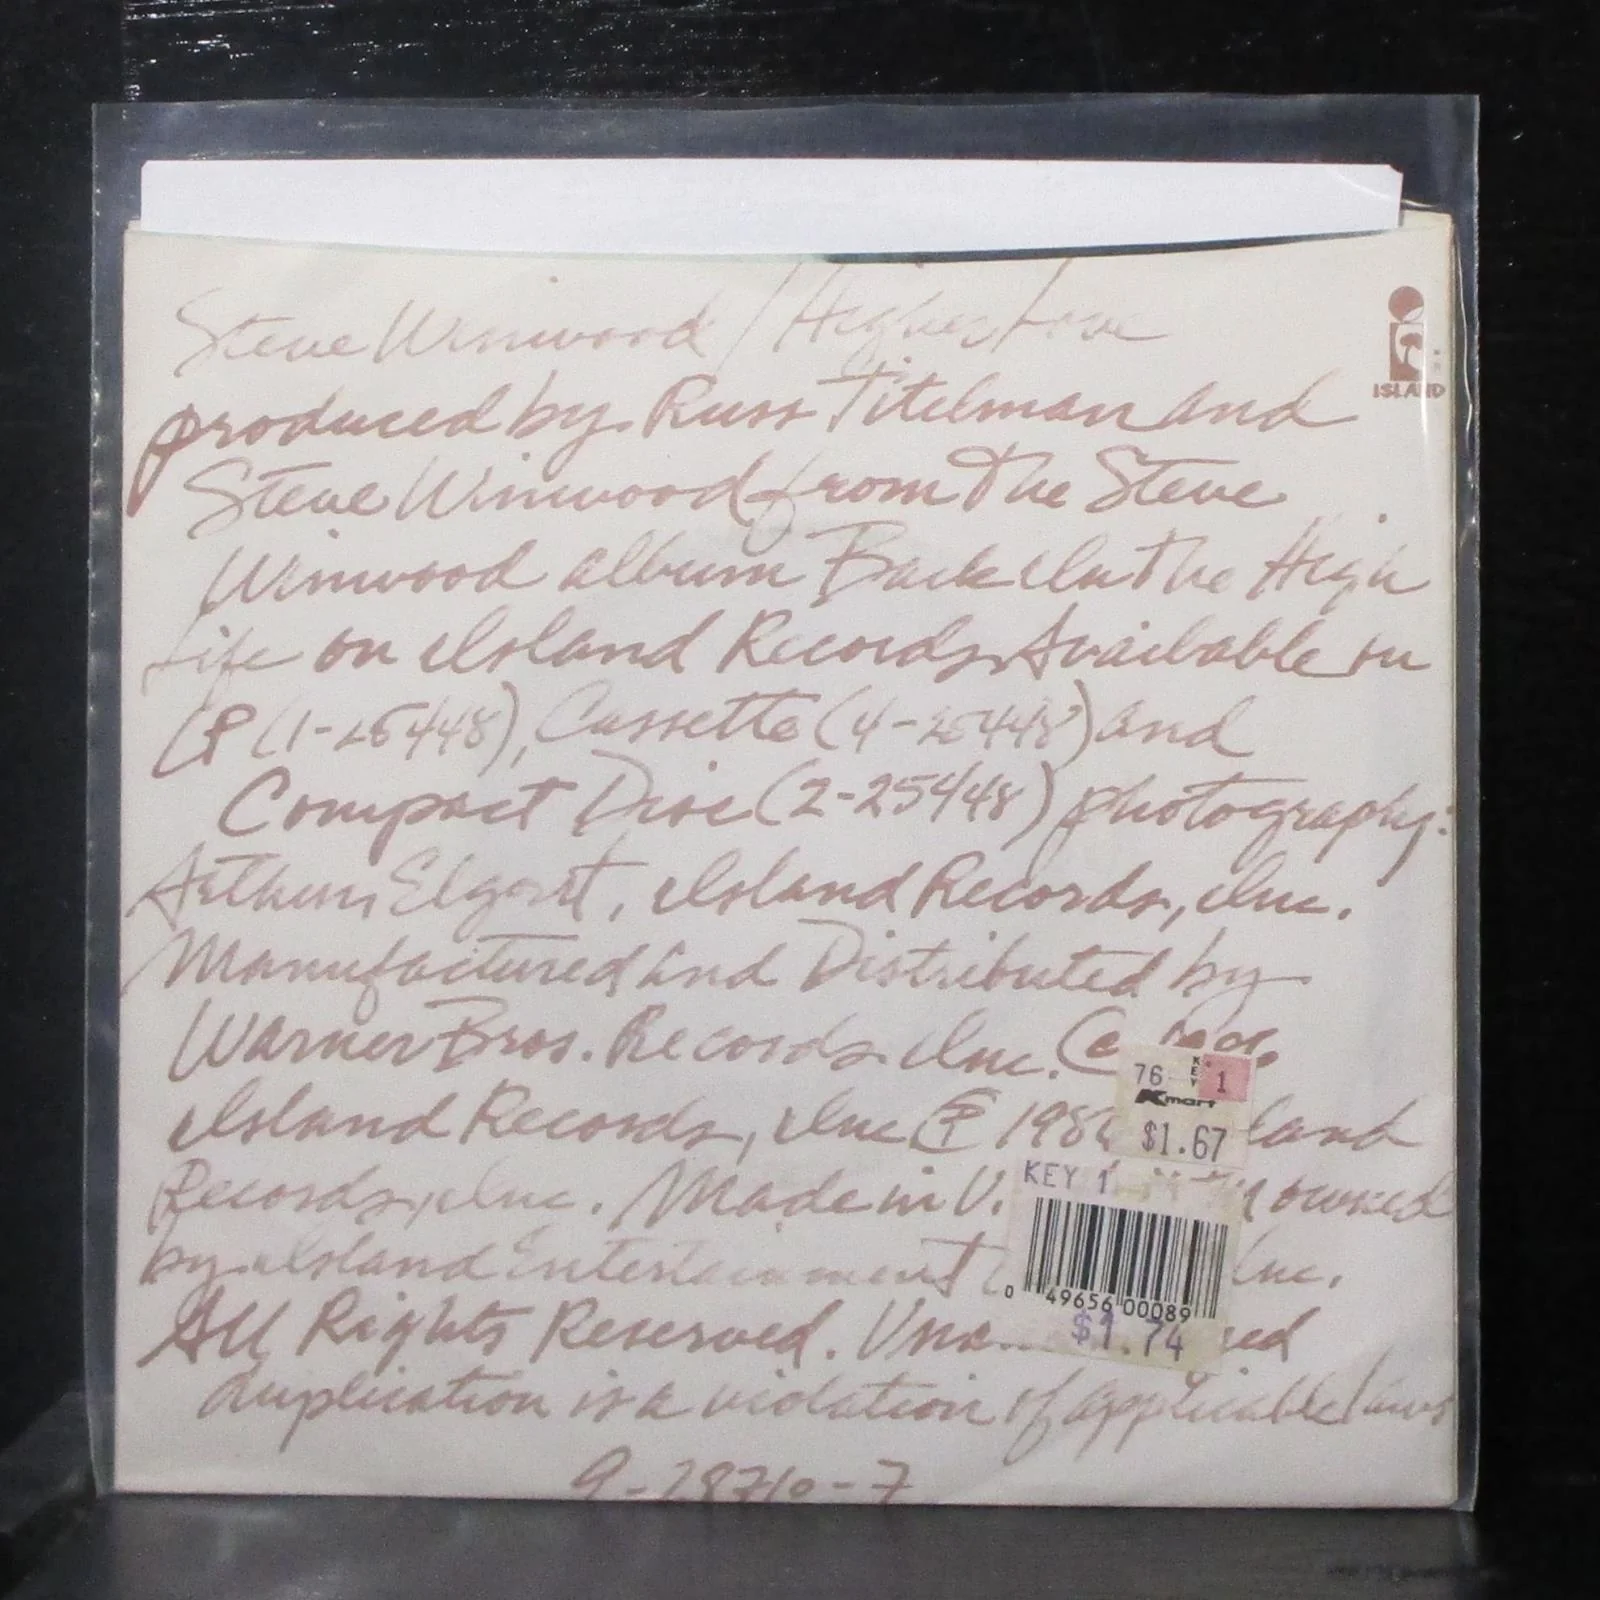 Steve Winwood / Higher Love
ISLAND
produced by Russ Titelman and
Steve Winwood from The Steve
Winwood album Back In The High
Life on Island Records Available on
LP (1-25448), Cassette (4-25448) and
Compact Disc (2-25448) photography:
Arthur Elgort, Island Records, Inc.
Manufactured and Distributed by
Warner Bros. Records Inc.
76 KEY 1
Kmart
$1.67
Island Records, Inc Ⓟ 198
Records, Inc. Made in U. owned
KEY 1
by Island Entertainment Inc.
0 49656 00089
$1.74
All Rights Reserved.
duplication is a violation of applicable laws
9-28710-7